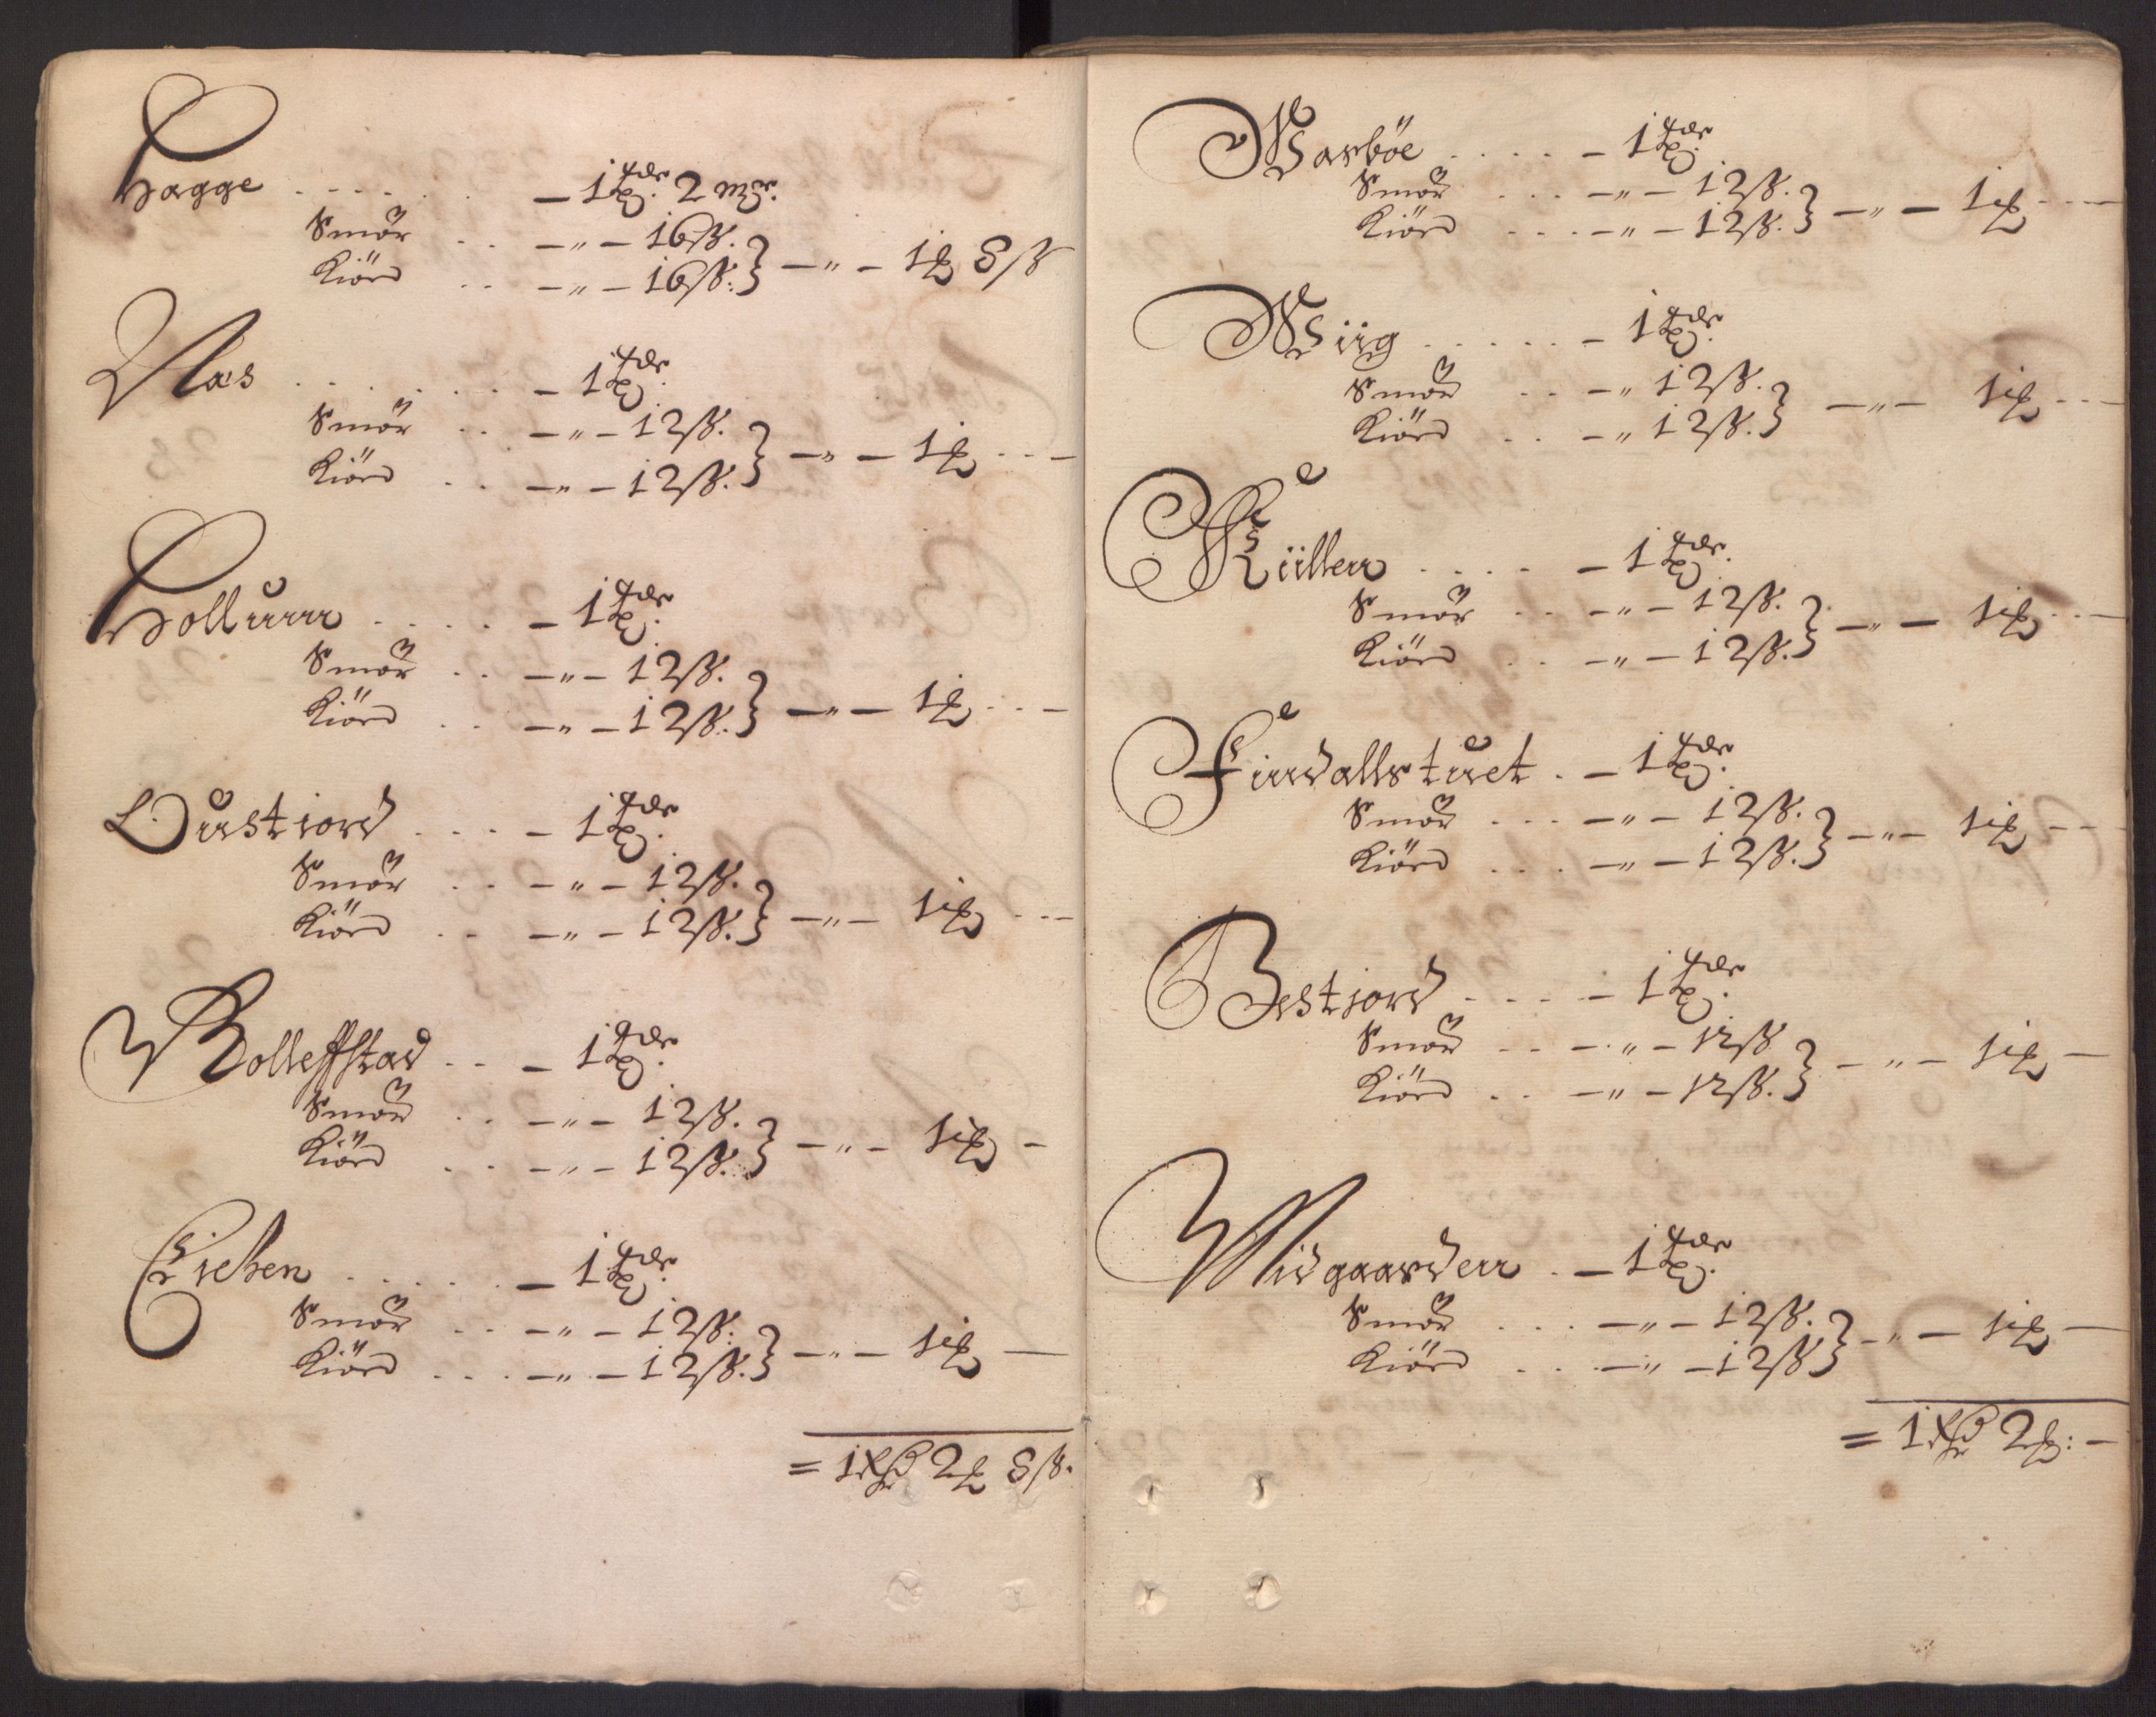 Hagge . . . . . . — 1 tdr. 2 mr.
Smör . . — „ — 16 ß.
Kiörd . . — „ — 16 ß: } — „ — 1 ℔ 8 ß
Næs . . . . . . — 1 tdr.
Smör . . — „ — 12 ß.
Kiörd . . — „ — 12 ß. } — „ — 1 ℔ . . . —
Hollumn . . . . . — 1 tdr.
Smör . . — „ — 12 ß.
Kiörd . . — „ — 12 ß. } — „ — 1 ℔ . . . —
Oustiord . . . . — 1 tdr.
Smör . . — „ — 12 ß.
Kiörd . . — „ — 12 ß. } — „ — 1 ℔ - - -
Rolleffstad . . — 1 tdr.
Smör . . — „ — 12 ß.
Kiörd . . — „ — 12 ß. } — „ — 1 ℔ —
Eichen . . . . . — 1 tdr.
Smör . . — „ — 12 ß.
Kiörd . . . — „ — 12 ß. } — „ — 1 ℔ —
= 1 Rdr 2 ℔ 8 ß.
Wasböe . . . . — 1 tdr.
Smör . . . — „ — 12 ß.
Kiörd . . . — „ — 12 ß. } — „ — 1 ℔ - - - —
Wiig . . . . . — 1 tdr.
Smör . . — „ 12 ß.
Kiörd . . — „ 12 ß. } — „ — 1 ℔ - - -
. . . . — 1 tdr.
Smör . . — „ — 12 ß.
Kiörd . . — „ — 12 ß. } — „ — 1 ℔ - - - —
Findallstuet . — 1 tdr.
Smör . . . — „ — 12 ß.
Kiörd . . . — „ — 12 ß. } — „ — 1 ℔ - - -
Bestiord - - - - — 1 tdr.
Smör - - — „ — 12 ß
Kiörd . . — „ — 12 ß. } — „ — 1 ℔ —
Midgaarden . — 1 tdr.
Smör . . . — „ — 12 ß.
Kiörd . . . — „ — 12 ß } — „ — 1 ℔ —
= 1 Rdr 2 ℔: —